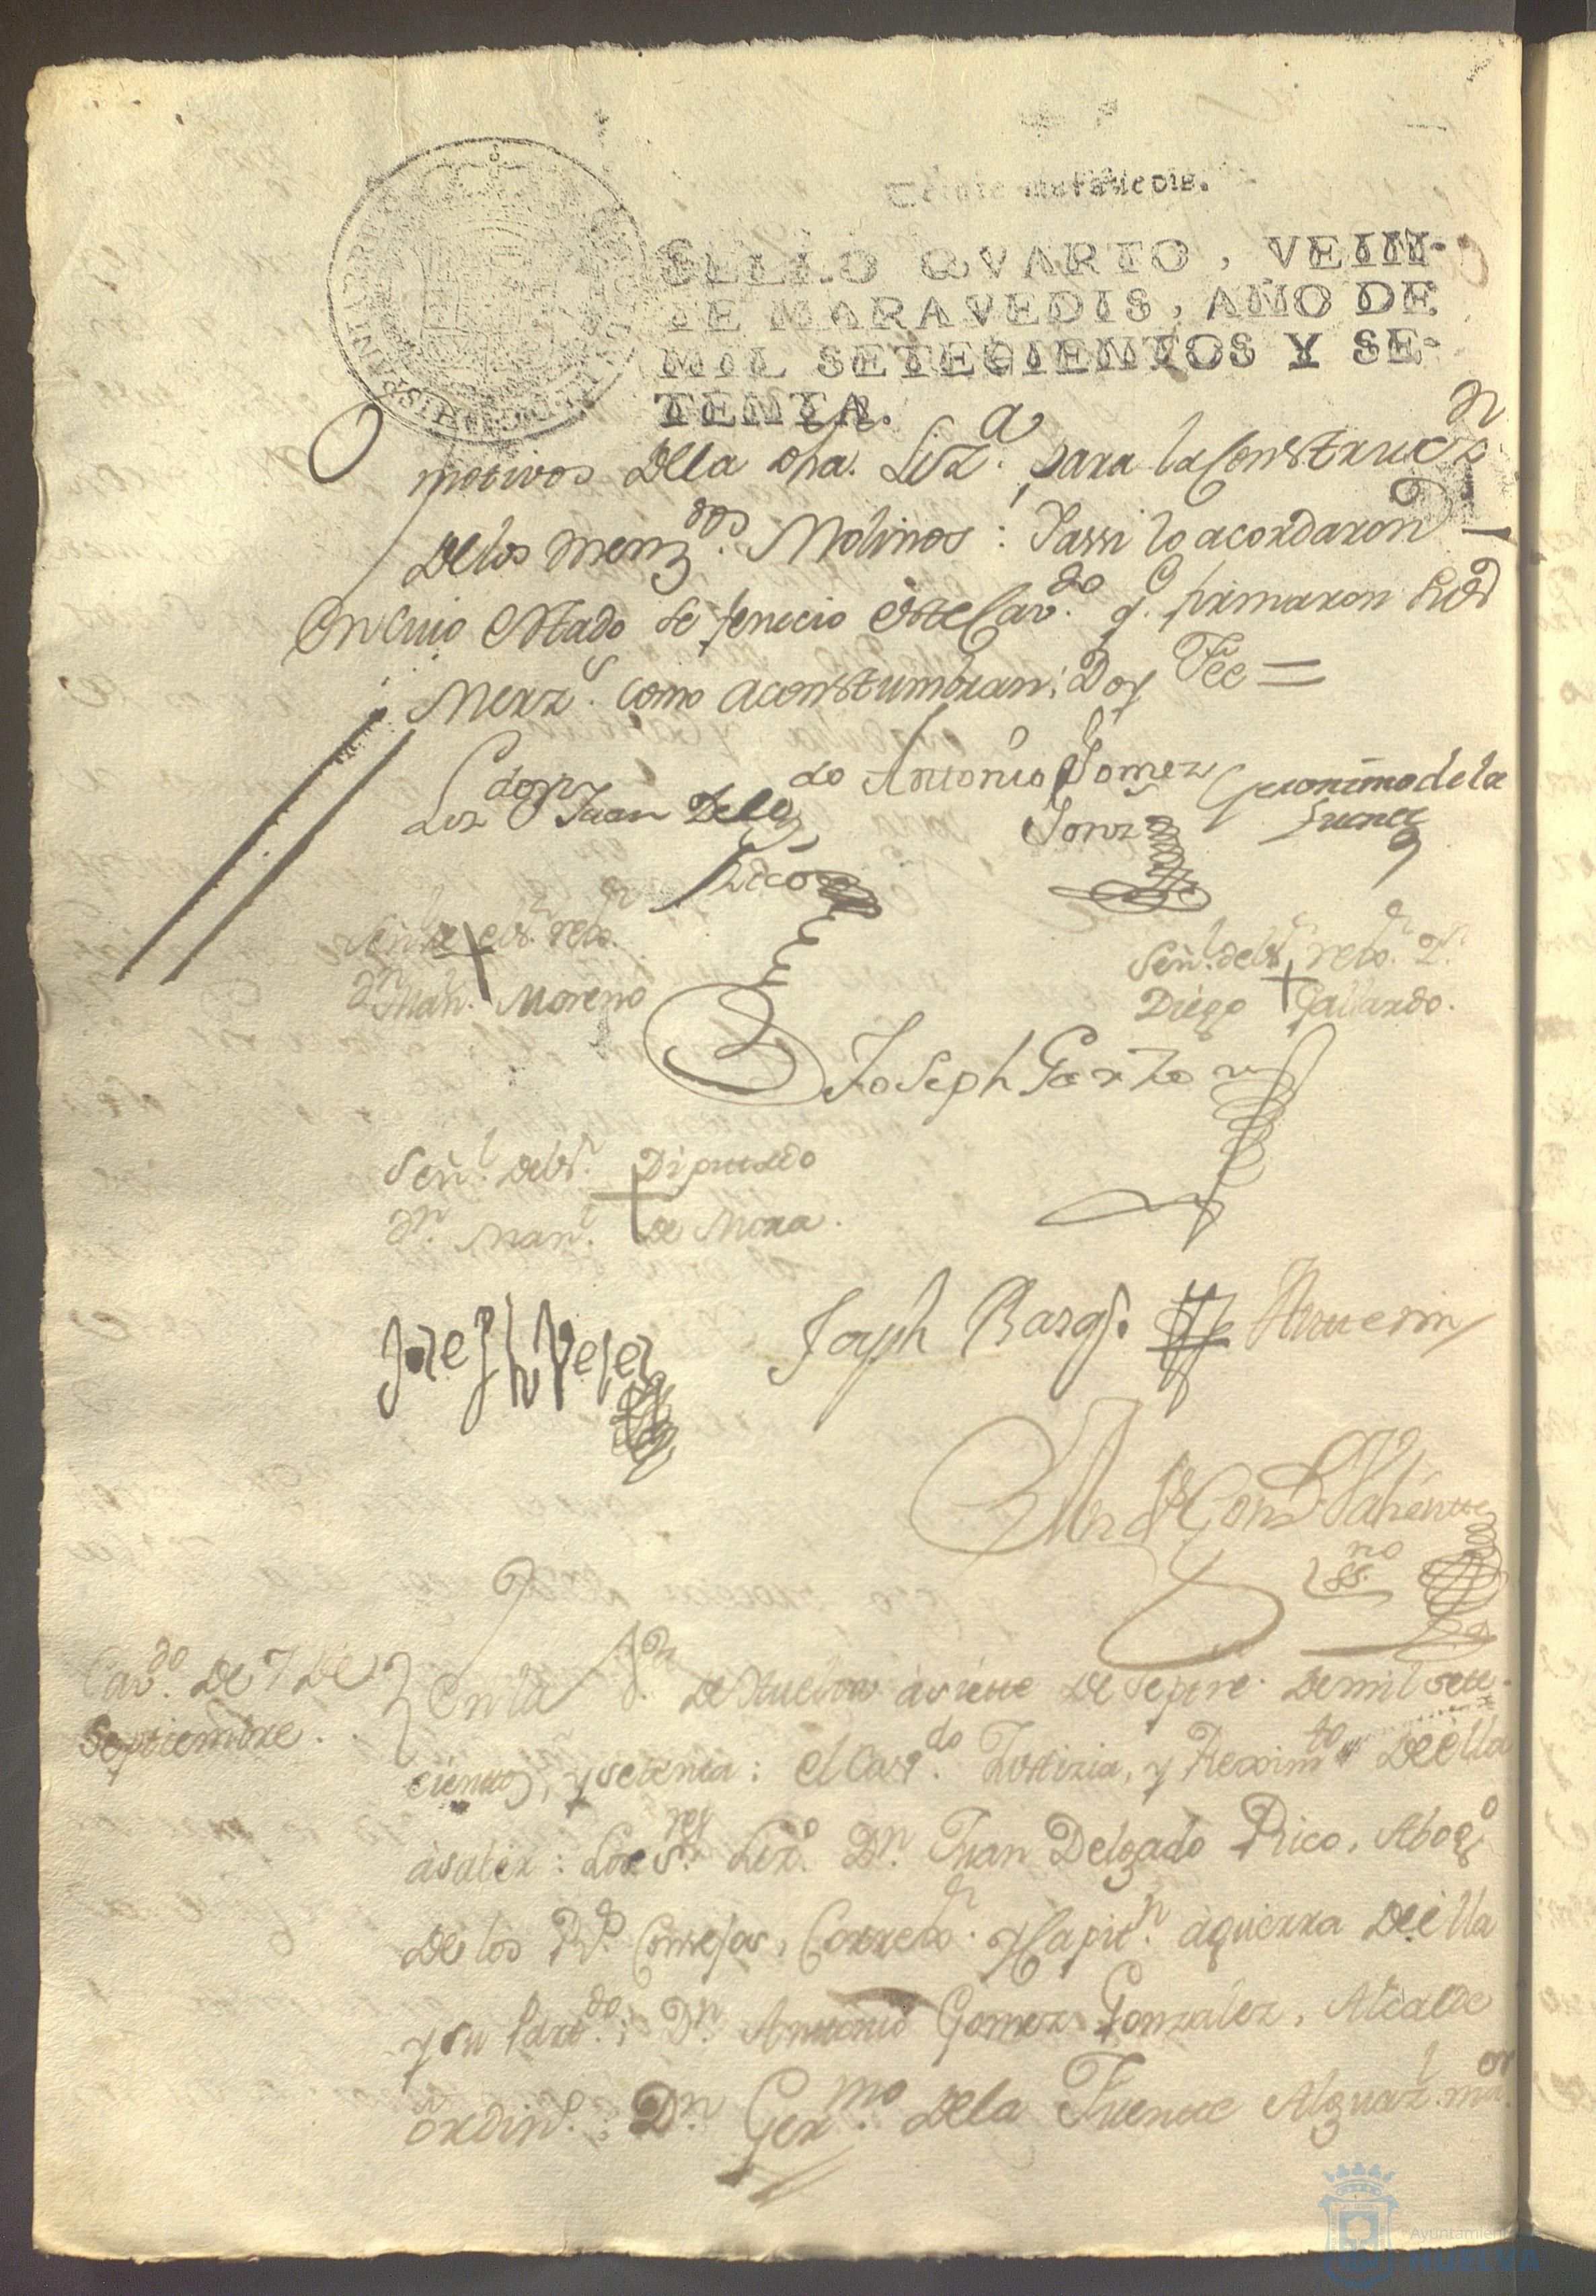 Veinte maravedis.
SELLO QVARTO, VEIN-
TE MARAVEDIS, AÑO DE
MIL SETECIENTOS Y SE-
TENTA.
motivos de la dha. Liz.ª para la Construcc.n
de los menz.dos Molinos: Yassi lo acordaron
en cuio estado se fenecio este Cav.do q. firmaron sus
Merz.s como aconstumbran; Doy Fee =
Liz.do Dn Juan Delg.do Antonio Gomez Geronimo de la
Rico Gonz Fuente
Señl. de el Sr. rexor.
Dn Man.l Moreno
Señl. del Sr. rexor. Dn.
Diego Gallardo.
Joseph Garzon
Señl. del Sr. Diputado
Dn. Man.l de Mora.
Joseph
Joseph
Valiente
SS.no
Cav.do de 7 de
Septiembre.
En la V.a de Huelva a siette de Septre. de mil sete-
cientos, y setenta: el Cav.do Justizia, y Reximto de ella
a saber: Los S.res Liz.do Dn. Juan Delgado Rico, Abog.o
de los R.s Consejos, Correxor. y Capit.n a guerra de ella
y su Part.do; Dn. Antonio Gomez Gonzalez, Alcalde
ordin.o; Dn Ger.mo de la Fuente Alguaz.l m.or
Ayuntamiento
HUELVA